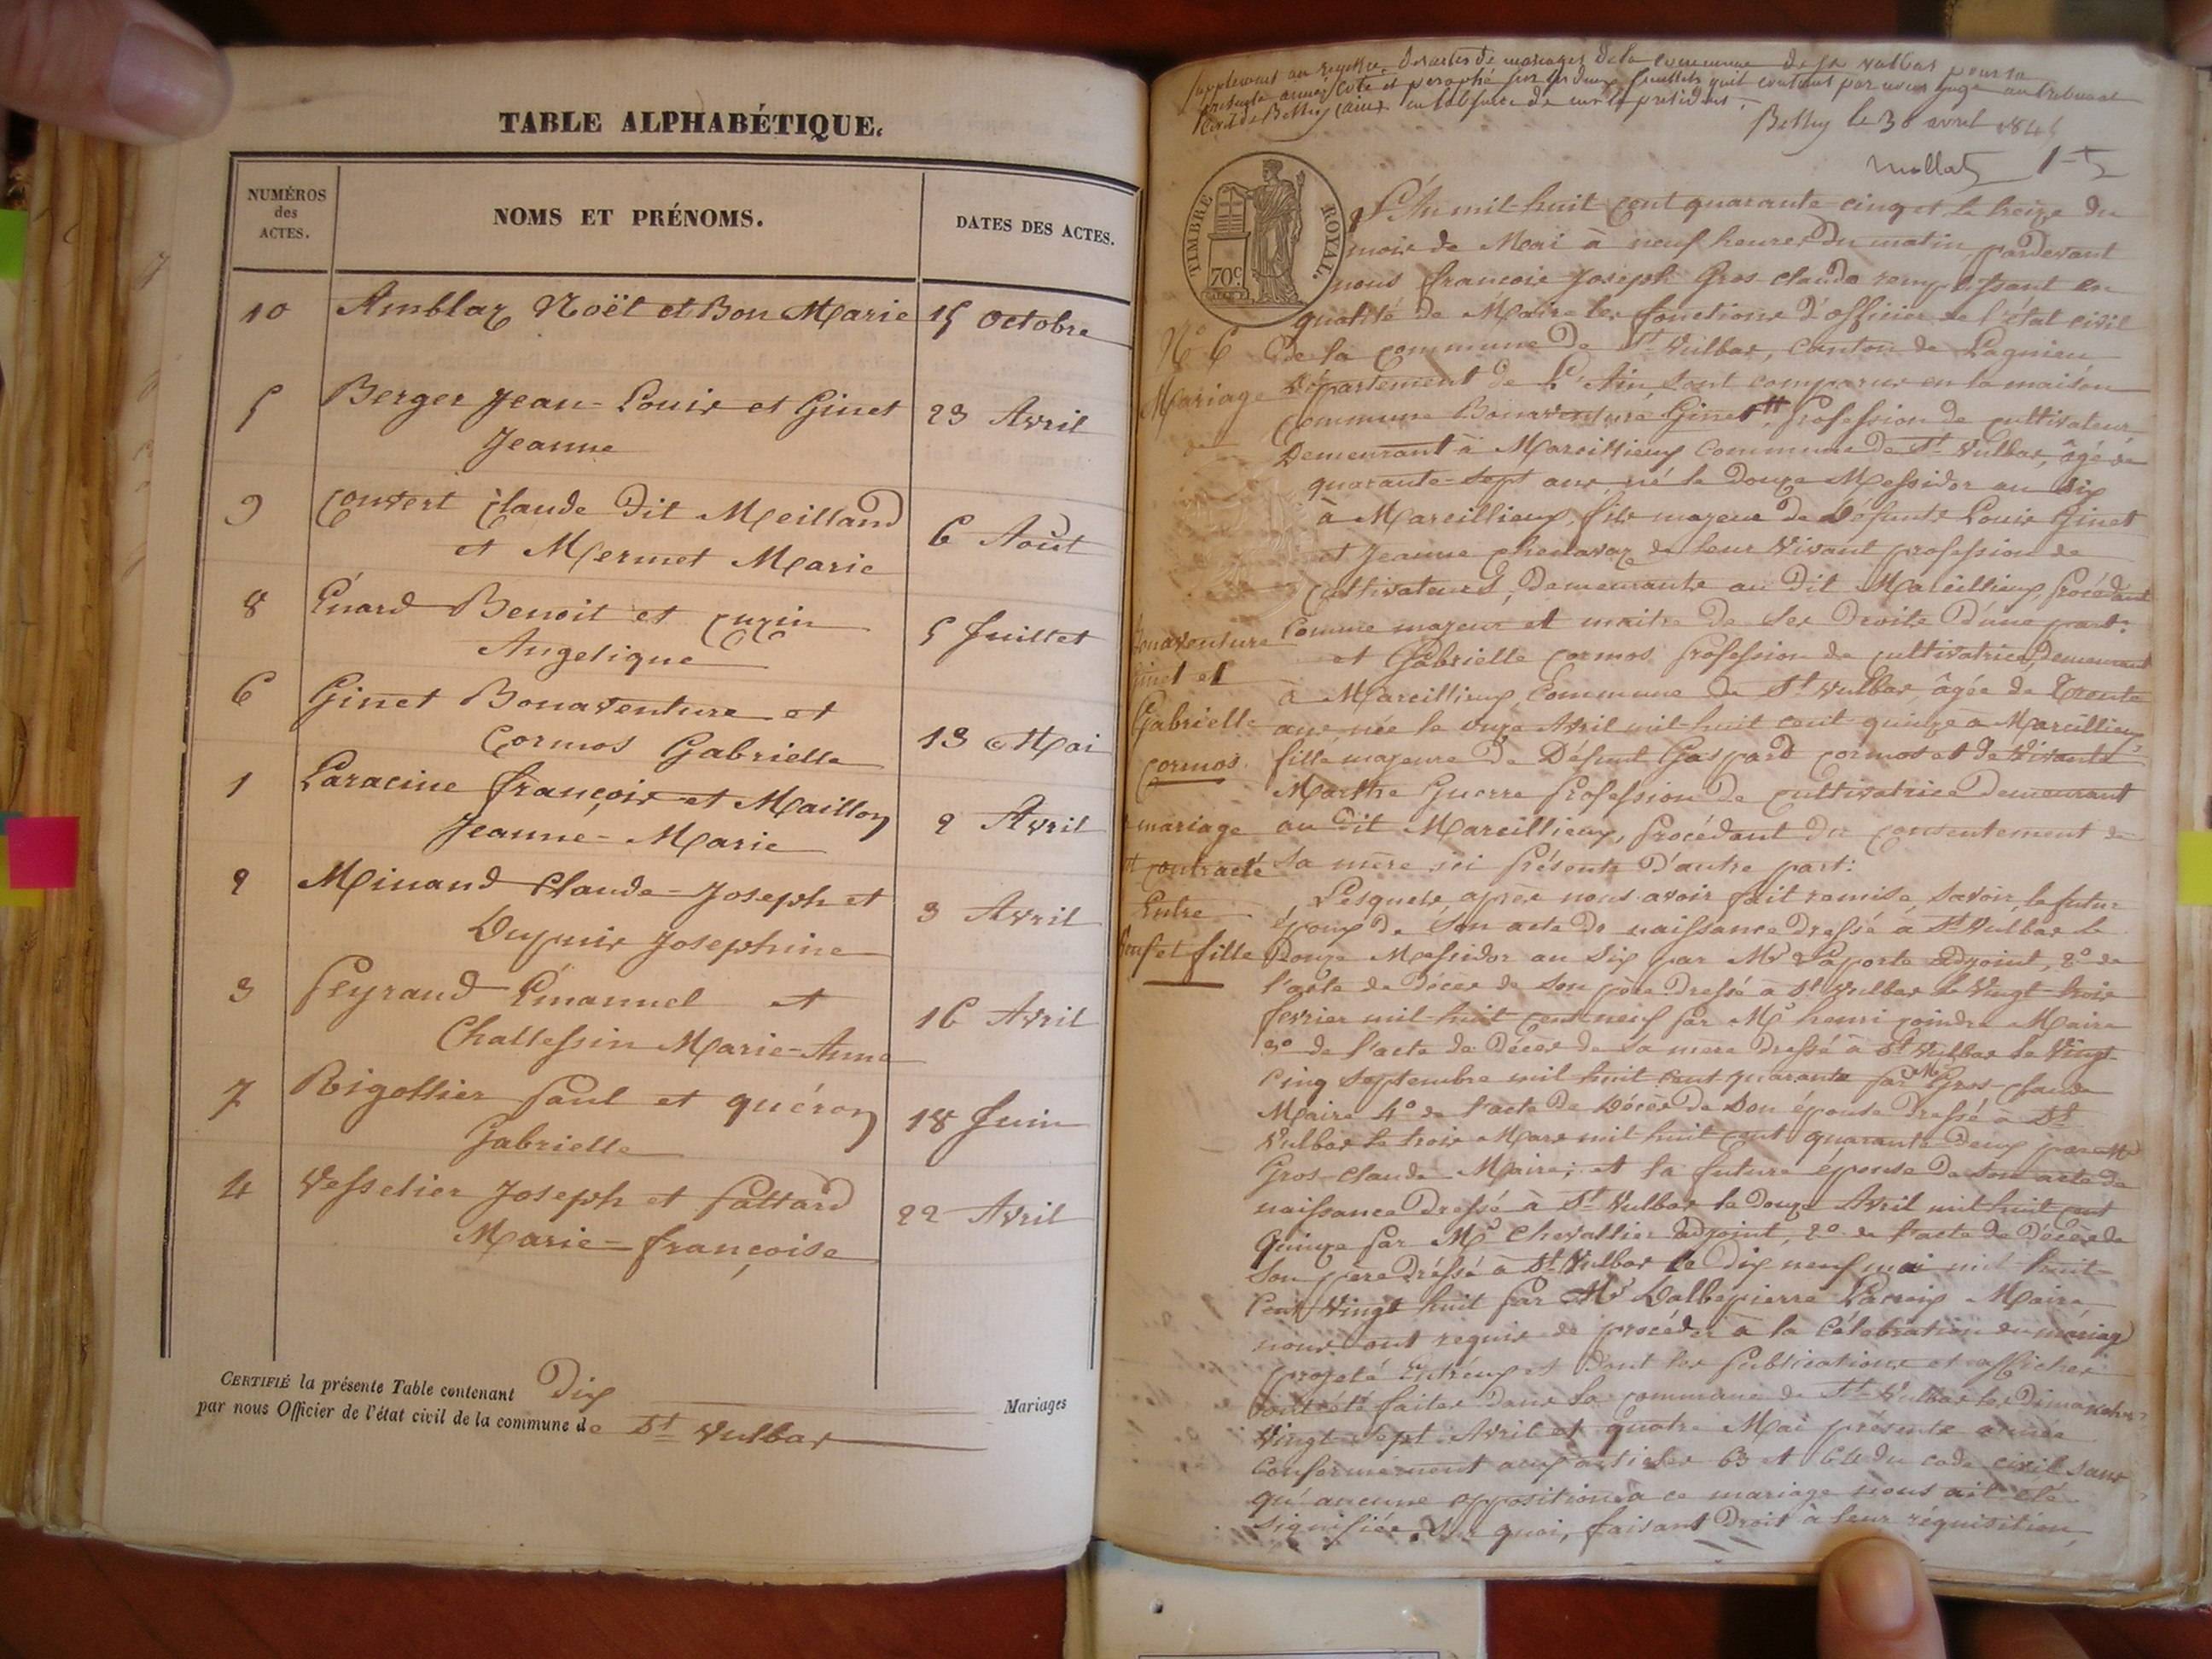 TABLE ALPHABÉTIQUE.
NUMÉROS
des
ACTES.
NOMS ET PRÉNOMS.
DATES DES ACTES.
10 Amblar Noët et Bon Marie 15 Octobre
5 Berger Jean-Louis et Ginet 23 Avril
Jeanne
9 Convert Claude dit Meilland
et Mermet Marie 6 Août
8 Énard Benoit et Cuzin 5 Juillet
Angelique
6 Ginet Bonaventure et
Cormos Gabrielle 13 Mai
1 Laracine françois et Maillon 2 Avril
Jeanne-Marie
2 Minand Claude-Joseph et 3 Avril
Dupuis Josephine
3 Peyraud Émanuel et 16 Avril
Challessin Marie-Anne
7 Rigollier Paul et quéron 18 Juin
Gabrielle
4 Vesselier Joseph et Pattard 22 Avril
Marie-françoise
CERTIFIÉ la présente Table contenant Dix Mariages
par nous Officier de l'état civil de la commune de St Vulbas
Supplement au registre des actes de mariages de la commune de St Vulbas pour la
présente année Coté et paraphé par deux feuillets qu'il contient par nous juge au tribunal
civil de Belley (ain) en l'absence de mr le président.
Belley le 30 avril 1845
TIMBRE ROYAL.
70c
L'An mil huit cent quarante-cinq et le treize du
mois de Mai à neuf heures du matin, pardevant
nous francois Joseph Gros-claude remplissant en
qualité de Maire les fonctions d'officier de l'état civil
No 6 de la commune de St Vulbas, Canton de Lagnieu
Mariage Département de L'Ain, sont comparus en la maison
commune Bonaventure Ginet, Profession de cultivateur
de Demeurant à Marcillieux Commune de St Vulbas, âgé de
quarante-sept ans, né le douze Messidor an Six
à Marcillieux, fils majeur de Défunts Louis Ginet
et Jeanne Chenavaz de leur Vivant profession de
Cultivateurs, Demeurants au dit Marcillieux, Procédant
Bonaventure Comme majeur et maitre de Ses Droits D'une part:
Ginet et et Gabrielle Cormos Profession de cultivatrice, demeurant
à Marcillieux Commune de St Vulbas âgée de Trente
Gabrielle ans née le onze Avril mil-huit cent-quinze à Marcillieux,
Cormos. fille majeure de Défunt Gaspard Cormos et de Vivante
Marthe Guerre Profession de Cultivatrice Demeurant
mariage au dit Marcillieux, Procédant du Consentement de
contracté Sa mère ici Présente D'autre part:
Entre Lesquels, après nous avoir fait remise, Savoir, le futur
époux de Son acte de naissance dressé à St Vulbas le
Veuf et fille Douze Messidor an Six par Mr Laporte adjoint, 2o de
l'acte de Décès de Son père dressé à St Vulbas le Vingt trois
fevrier mil-huit cent neuf par Mr henri Maire
3o de l'acte de Décès de Sa mère dressé à St Vulbas le Vingt-
Cinq Septembre mil huit cent quarante par Mr Gros-claude
Maire 4o de l'acte de Décès de Son épouse dressé à St
Vulbas le trois Mars mil huit cent quarante deux par Mr
Gros-claude Maire; et la future épouse de Son acte de
naissance dressé à St Vulbas le douze Avril mil-huit cent
Quinze par Mr Chevallier adjoint, 2o de l'acte de Décès de
Son père dréssé à St Vulbas le Dix neuf mai mil huit-
Cent Vingt huit par Mr Dalbepierre Maire,
nous ont requis de procéder à la Célébration du mariage
projeté entr'eux et dont les Publications et affiches
ont été faites dans la commune de St Vulbas les Dimanches
Vingt-Sept Avril et quatre Mai présente année
Conformément aux articles 63 et 64 du code civil Sans
qu'aucune opposition à ce mariage nous ait été
Signifiée. Sur quoi, faisant Droit à leur réquisition,